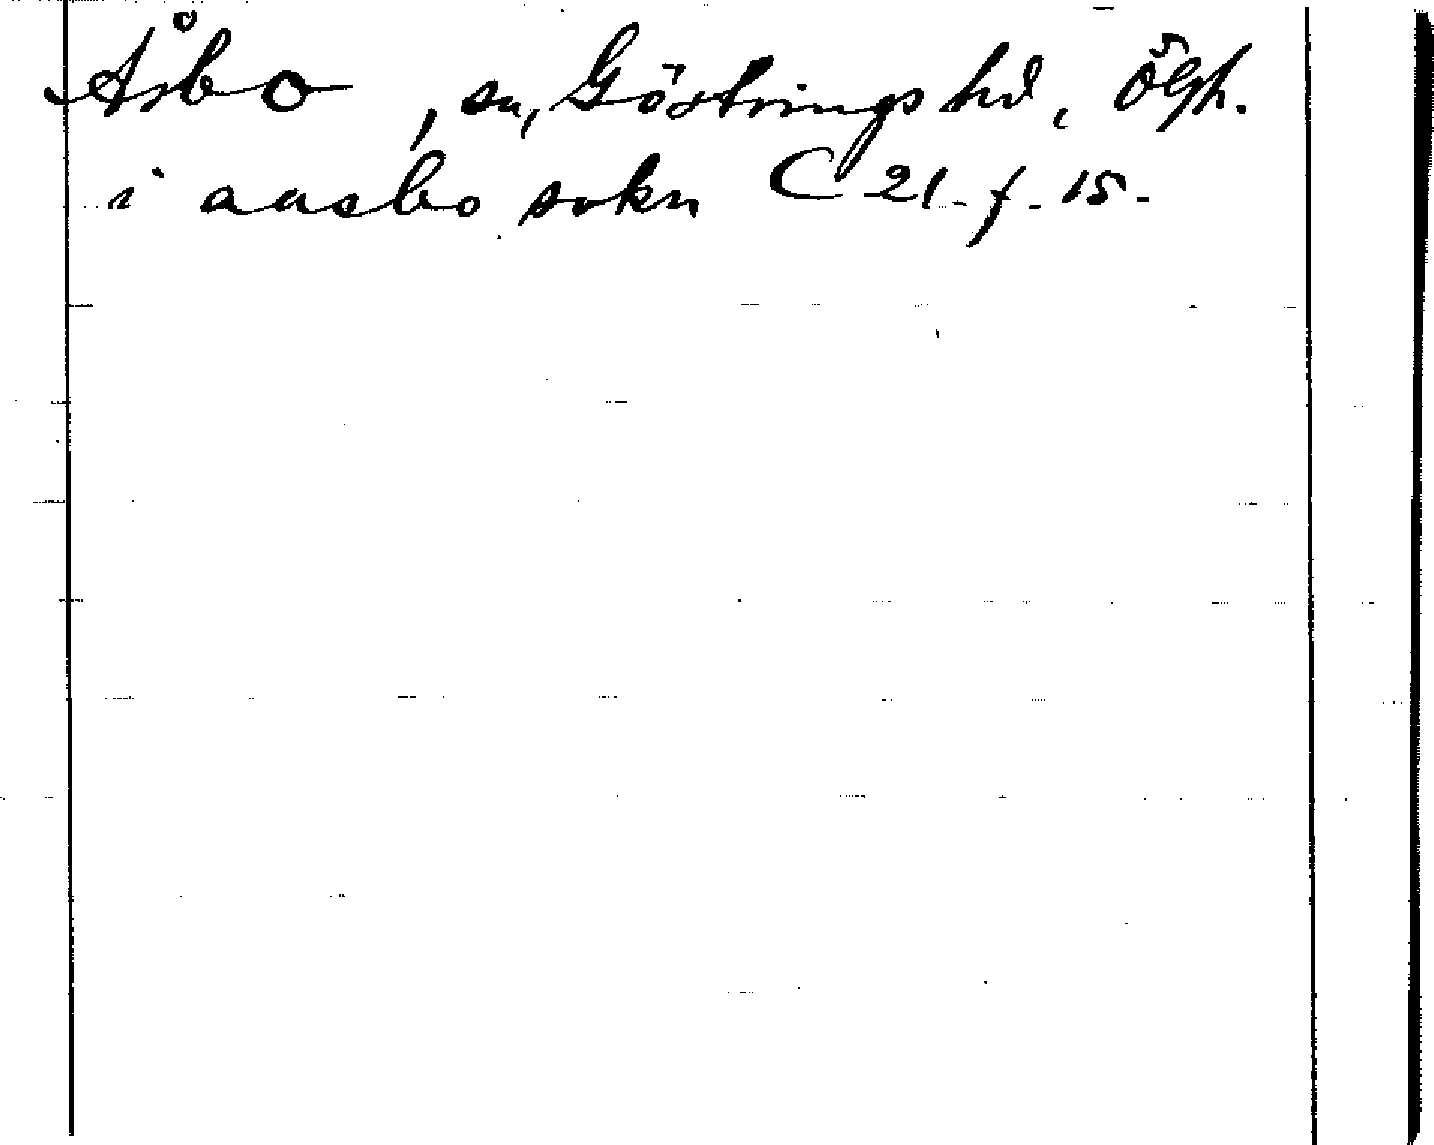 Åsbo, sn, Göstrings hd, Ögtl.
i aasbo sokn C 21 - f - 15 -